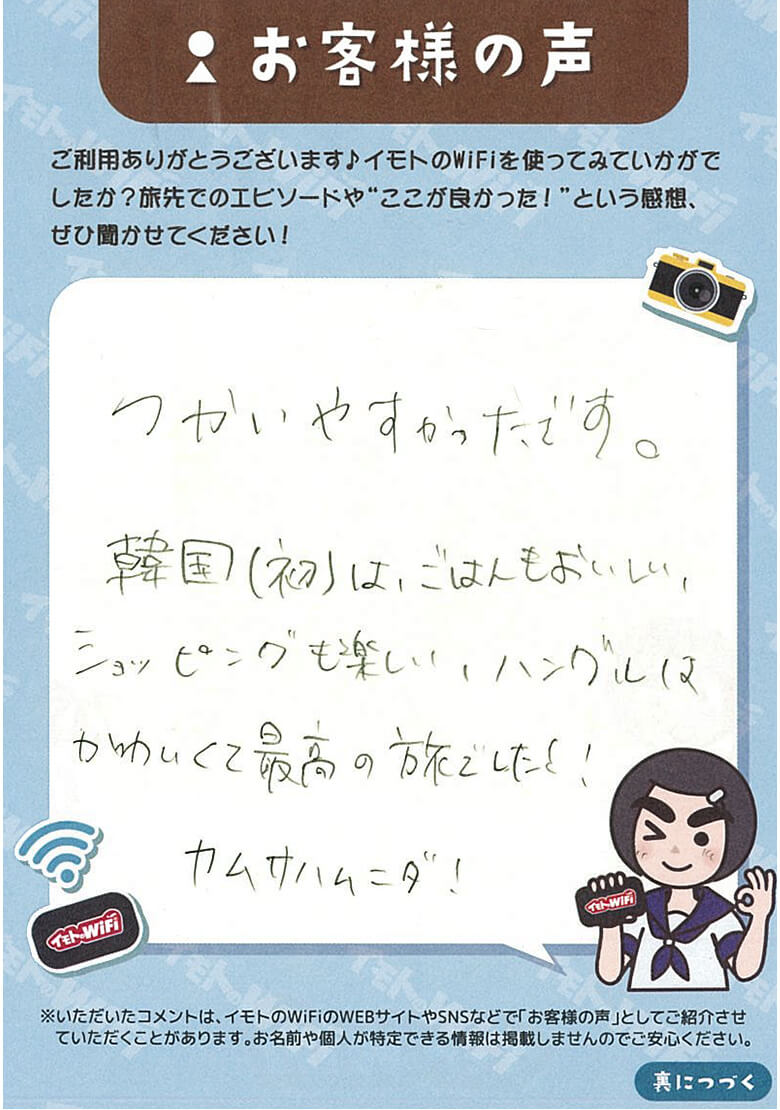 お客様の声
ご利用ありがとうございます♪イモトのWiFiを使ってみていかがで
したか？旅先でのエピソードや“ここが良かった！”という感想、
ぜひ聞かせてください！
つかいやすかったです。
韓国(初)は、ごはんもおいしい、
ショッピングも楽しい、ハングルは
かわいくて最高の旅でした！
カムサハムニダ！
イモトのWiFi
イモトのWiFi
※いただいたコメントは、イモトのWiFiのWEBサイトやSNSなどで「お客様の声」としてご紹介させ
ていただくことがあります。お名前や個人が特定できる情報は掲載しませんのでご安心ください。
裏につづく